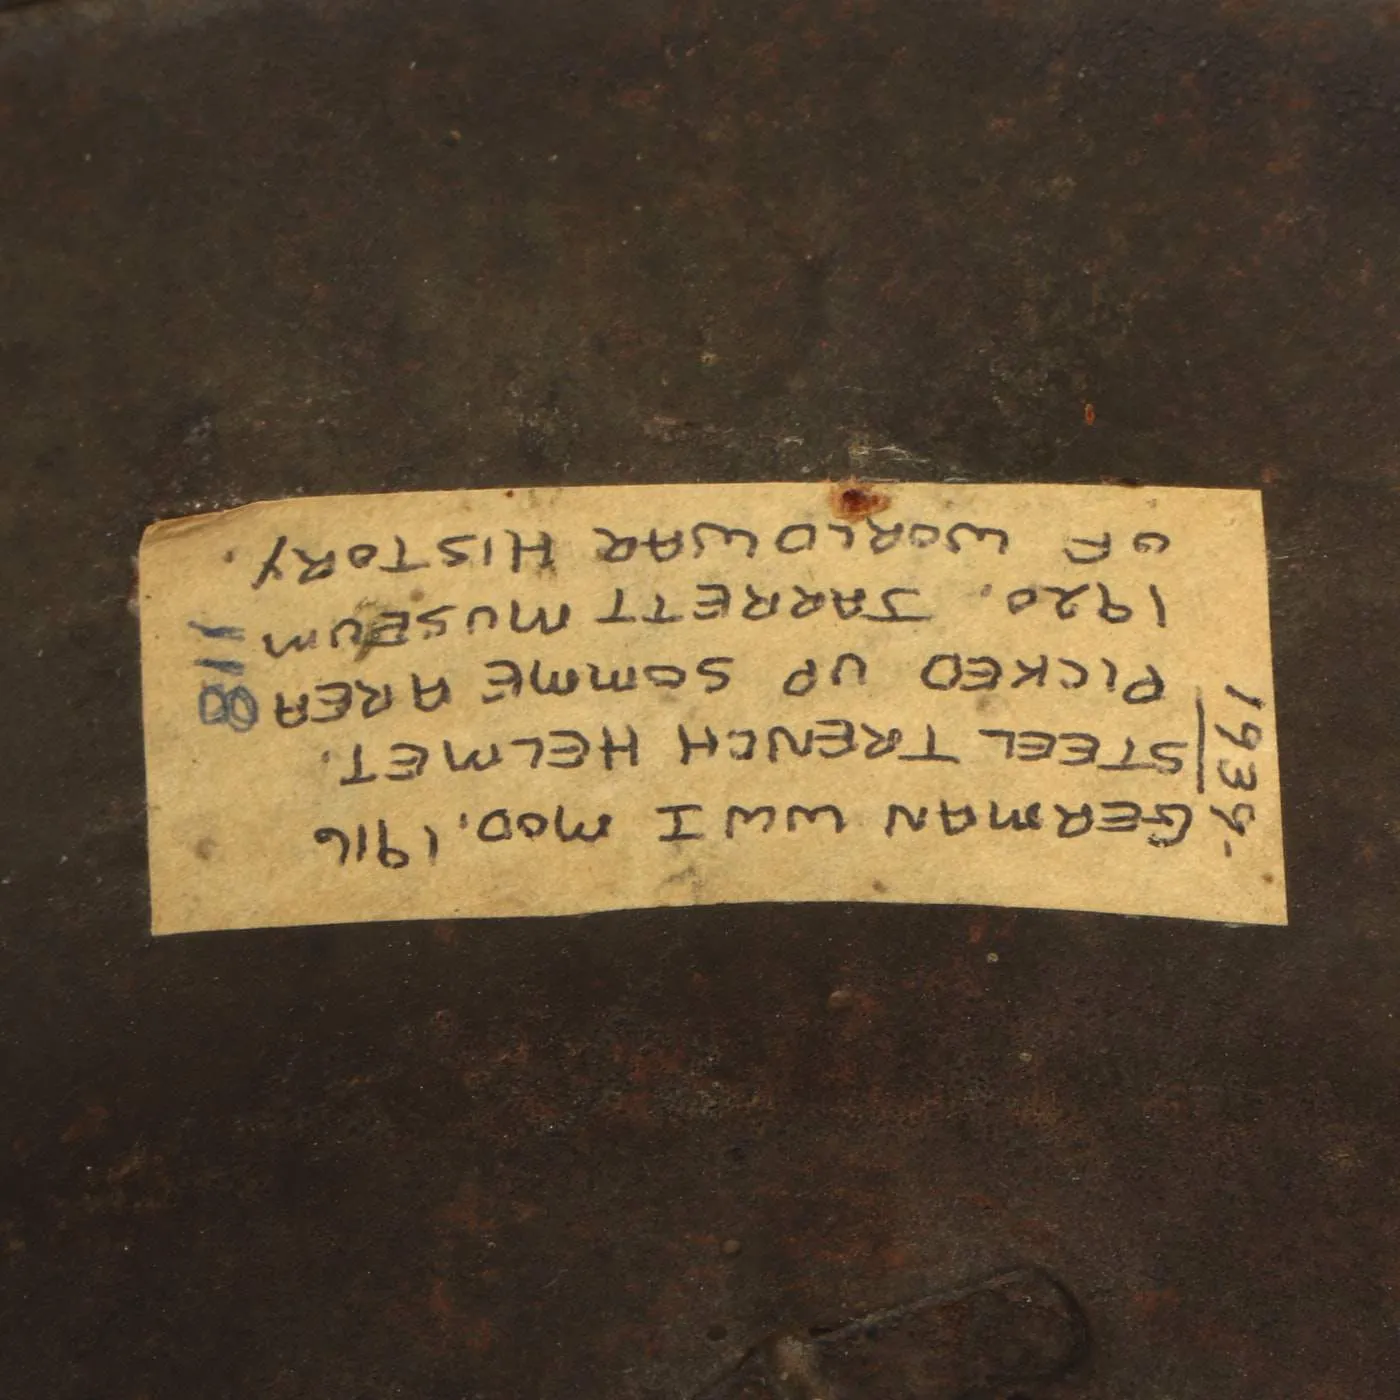 GERMAN WW I MOD. 1916
STEEL TRENCH HELMET.
PICKED UP SOMME AREA
1920. JARRETT MUSEUM
OF WORLD WAR HISTORY.
118